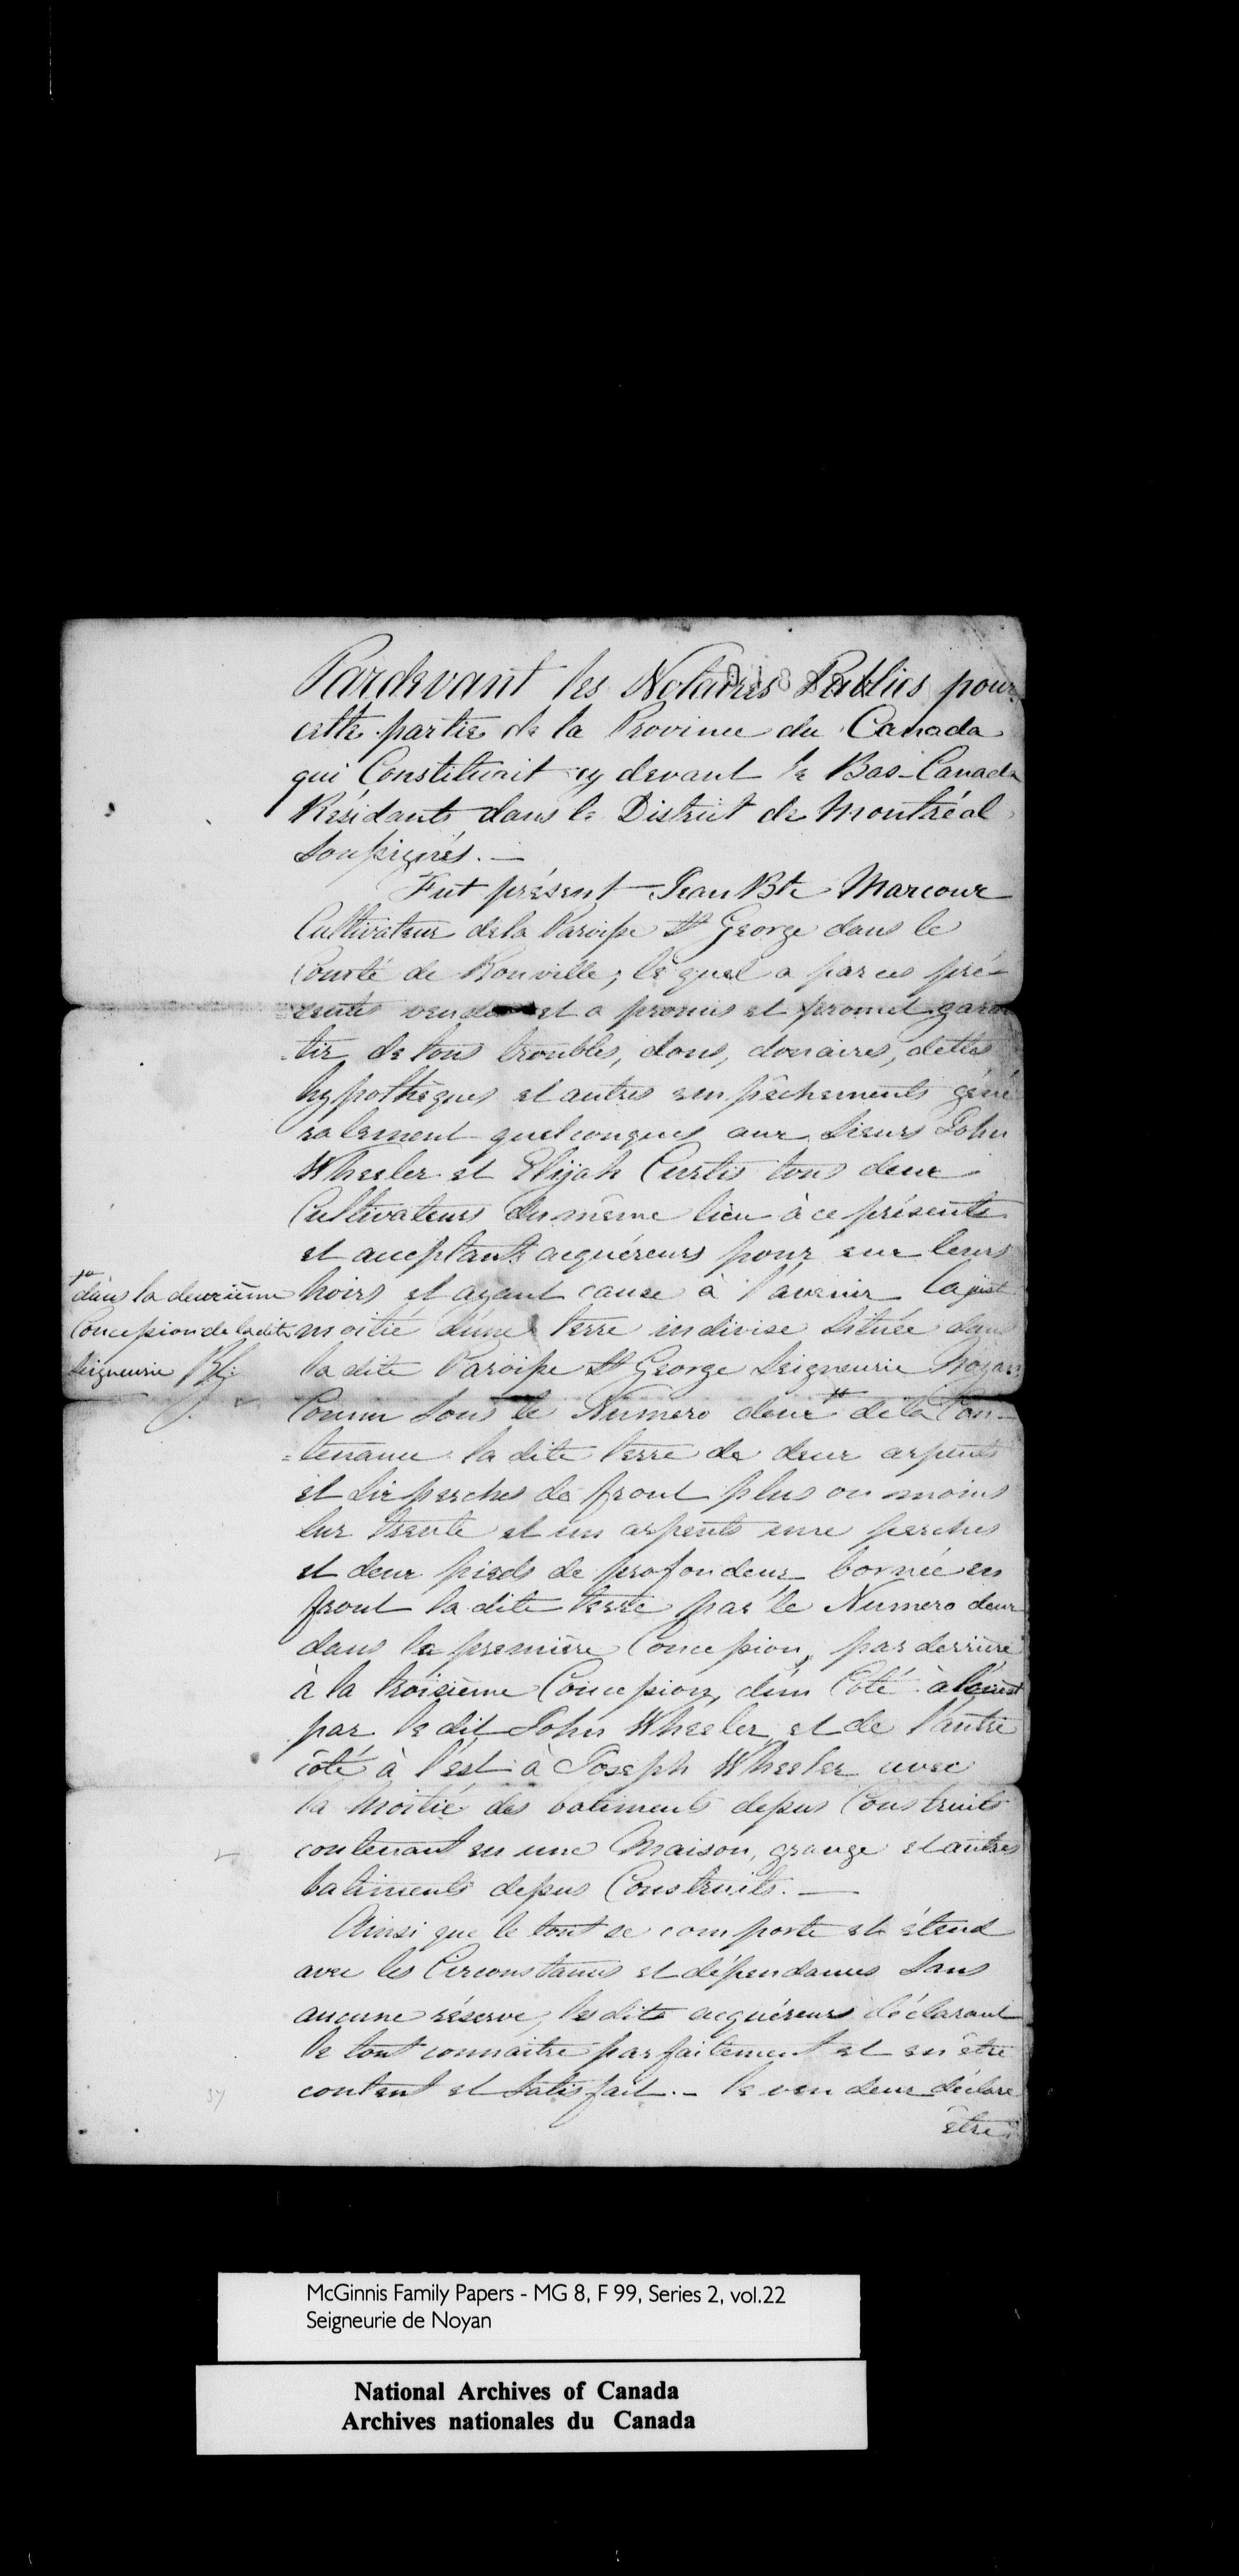 Pardevant les Notaires Publics pour
cette partie de la Province du Canada
qui Constituait cy devant le Bas-Canada
Résidants dans le District de Montréal
Soussignés. —
Fut présent Jean Bte Marcoux
Cultivateur de la Paroisse St George dans le
Comté de Rouville; le quel a par ces pré-
sentes vendu et a promis et promet garan
tir de tous troubles, dons, douaires, dettes
hypothèques et autres empêchements géné
ralement quelconques aux Sieurs John
Wheeler et Elijah Curtis tous deux
Cultivateurs du même lieu à ce présents
et acceptants acquéreurs pour eux leurs
hoirs et ayant cause à l'avenir la juste
moitié d'une terre indivise Située dans
la dite Paroisse St George Seigneurie Noyan
Connu Sous le Numero deux # de la Con-
=tenance la dite terre de deux arpents
et Six perches de front plus ou moins
Sur trente et un arpents une perches
et deux pieds de profondeur bornée en
front la dite terre par le Numero deux
dans la première Concession, par derrière
à la troisième Concession, d'un Côté à l'ouest
par le dit John Wheeler, et de l'autre
côté à l'est à Joseph Wheeler avec
la Moitié des batiments dessus Construits
contenant en une Maison, grange et autres
batiments dessus Construits. —
Ainsi que le tout se comporte et étend
avec les Circonstances et dépendances Sans
aucune réserve, les dits acquéreurs déclarant
le tout connaitre parfaitement et en être
content et Satisfait. - le vendeur déclare
être
# dans la deuxième
Concession de la dite
Seigneurie
McGinnis Family Papers - MG 8, F 99, Series 2, vol.22
Seigneurie de Noyan
National Archives of Canada
Archives nationales du Canada